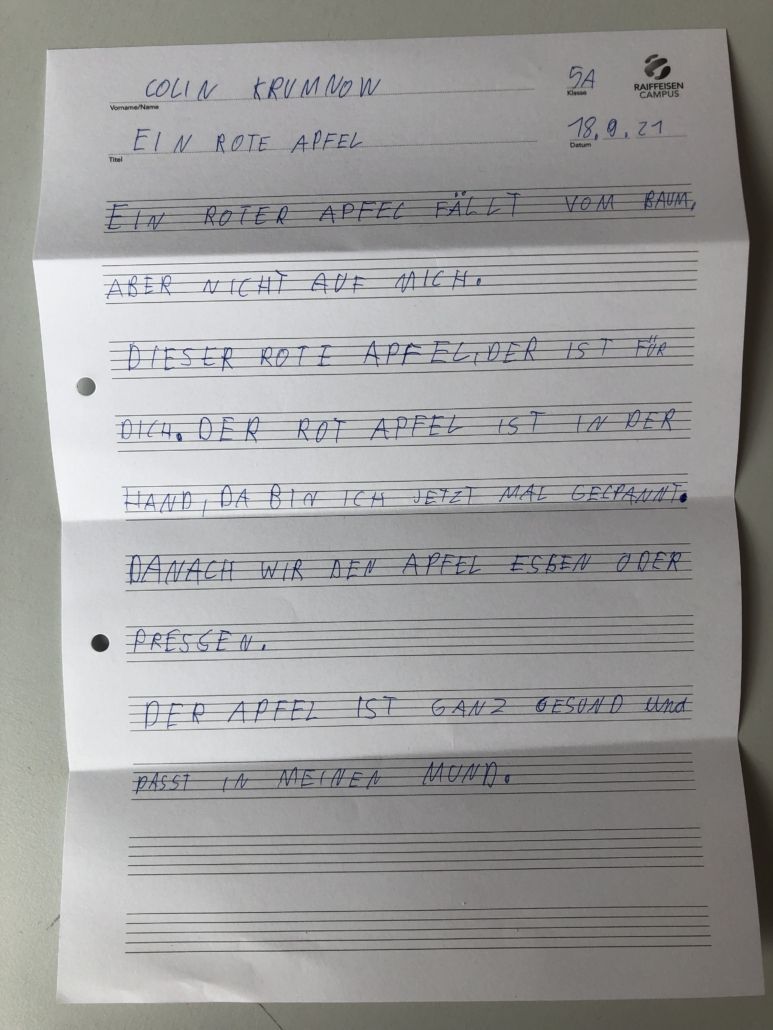 COLIN KRUMNOW
Vorname/Name
5A
Klasse
RAIFFEISEN
CAMPUS
EIN ROTE APFEL
Titel
18.9.21
Datum
EIN ROTER APFEL FÄLLT VOM BAUM,
ABER NICHT AUF MICH.
DIESER ROTE APFEL, DER IST FÜR
DICH. DER ROT APFEL IST IN DER
HAND, DA BIN ICH JETZT MAL GESPANNT.
DANACH WIR DEN APFEL ESSEN ODER
PRESSEN.
DER APFEL IST GANZ GESUND und
PASST IN MEINEN MUND.